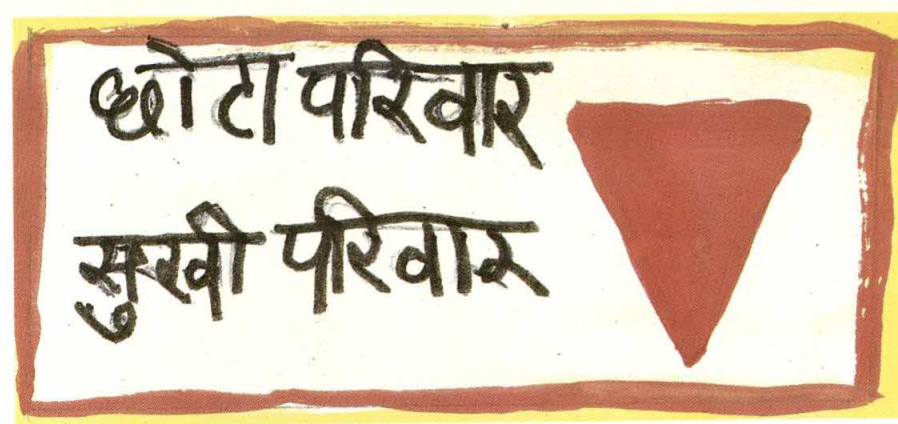 छोटा परिवार
सुखी परिवार